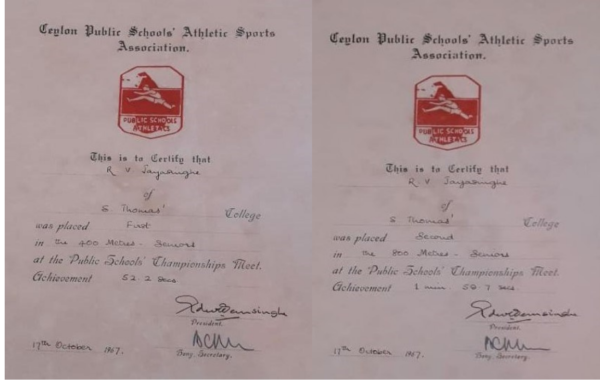 Ceylon Public Schools' Athletic Sports
Association.
PUBLIC SCHOOLS
ATHLETICS
This is to Certify that
R V Jayasinghe
of
S Thomas' College
was placed First
in the 400 Metres - Seniors
at the Public Schools' Championships Meet.
Achievement 52.2 secs
President.
17th October 1967.
Hony. Secretary.
Ceylon Public Schools' Athletic Sports
Association.
PUBLIC SCHOOLS
ATHLETICS
This is to Certify that
R V Jayasinghe
of
S Thomas' College
was placed Second
in the 800 Metres - Seniors
at the Public Schools' Championships Meet.
Achievement 1 min 58.7 secs
President.
17th October 1967.
Hony. Secretary.